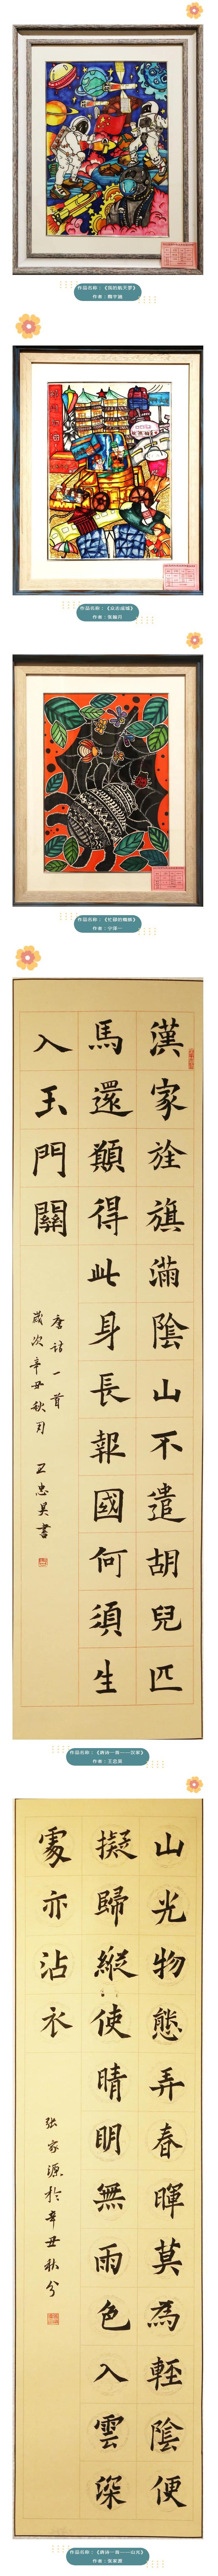 作品名称：《我的航天梦》
作品名称：《众志成城》
作者：张陽月
作品名称：《忙碌的蜘蛛》
漢家旌旗滿陰山不遣胡兒匹
馬還願得此身長報國何須生
入玉門關
唐詩一首
歲次辛丑秋月 王忠昊書
作品名称：《唐诗一首——汉家》
作者：王忠昊
山光物態弄春暉莫為輕陰便
擬歸縱使晴明無雨色入雲深
處亦沾衣
張家源於辛丑秋分
作品名称：《唐诗一首——山光》
作者：张家源